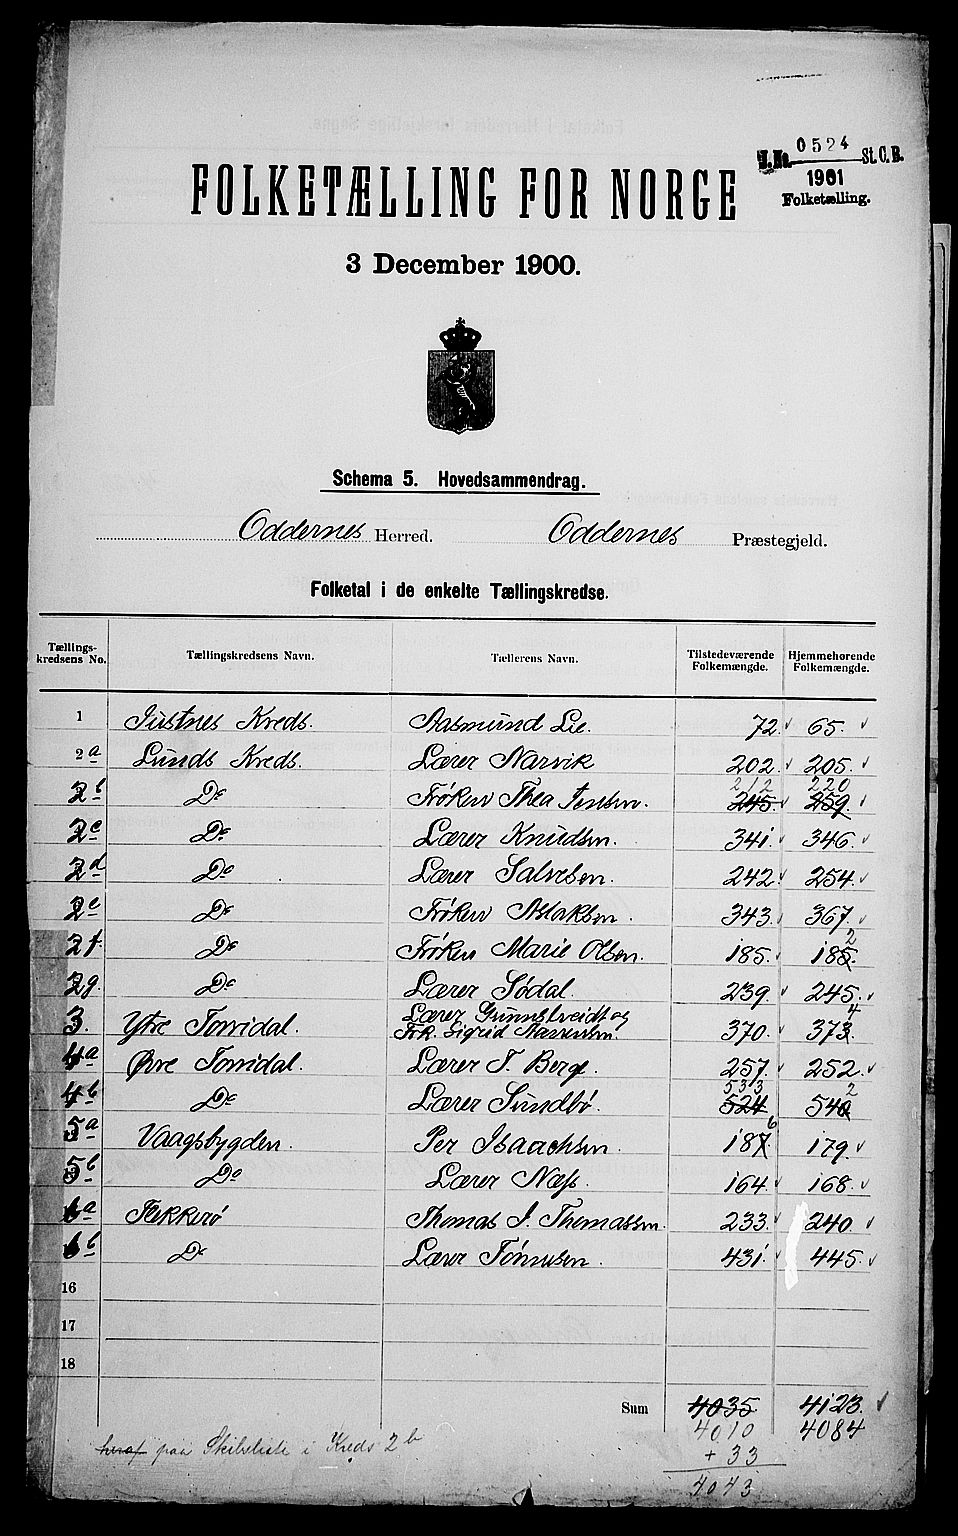 J. No. 0524 St. C. B.
1901
Folketælling.
FOLKETÆLLING FOR NORGE
3 December 1900.
Schema 5. Hovedsammendrag.
Oddernes Herred. Oddernes Præstegjeld.
Folketal i de enkelte Tællingskredse.
Tællings-kredsens No. Tællingskredsens Navn. Tællerens Navn. Tilstedeværende Folkemængde. Hjemmehørende Folkemængde.
1 Justnes Kreds. Aasmund Lie. 72. 65.
2a Lunds Kreds. Lærer Narvik 202. 205.
212 220
2b Do Frøken Thea Jensen. 245. 259.
2c Do Lærer Knudsen. 341. 346.
2d Do Lærer Salvesen. 242. 254.
2e Do Frøken Aslaksen. 343. 367.
2f. Do Frøken Marie Olsen. 185. 185. 2
2g. Do Lærer Sødal. 239. 245.
3. Ytre Torridal. Lærer Gunnstveidt og
Frk. Sigrid 370. 373. 4
4a Øvre Torridal. Lærer T. Berge. 257. 252.
533 2
4b Do Lærer Sundbø. 524 540
5a Vaagsbygden. Per Isaachsen. 187 6 179.
5b Do Lærer Næss. 164. 168.
6a Flekkerø Thomas J. Thomassen. 233. 240.
6b Do Lærer Tønnesen. 431. 445.
16
17
18
Sum 4035 4123.
4010 4084
+ 33
4043
heraf paa Skibsliste i Kreds 2b